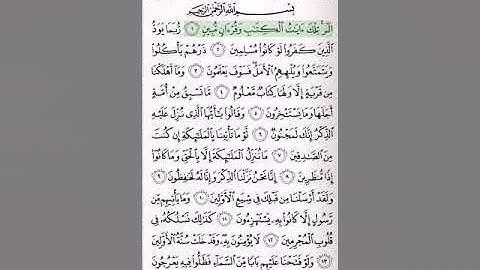 بِسْمِ ٱللَّهِ ٱلرَّحْمَٰنِ ٱلرَّحِيمِ
الٓر ۚ تِلْكَ ءَايَٰتُ ٱلْكِتَٰبِ وَقُرْءَانٍ مُّبِينٍ ١ رُّبَمَا يَوَدُّ
ٱلَّذِينَ كَفَرُوا۟ لَوْ كَانُوا۟ مُسْلِمِينَ ٢ ذَرْهُمْ يَأْكُلُوا۟
وَيَتَمَتَّعُوا۟ وَيُلْهِهِمُ ٱلْأَمَلُ ۖ فَسَوْفَ يَعْلَمُونَ ٣ وَمَآ أَهْلَكْنَا
مِن قَرْيَةٍ إِلَّا وَلَهَا كِتَابٌ مَّعْلُومٌ ٤ مَّا تَسْبِقُ مِنْ أُمَّةٍ
أَجَلَهَا وَمَا يَسْتَـْٔخِرُونَ ٥ وَقَالُوا۟ يَٰٓأَيُّهَا ٱلَّذِى نُزِّلَ عَلَيْهِ
ٱلذِّكْرُ إِنَّكَ لَمَجْنُونٌ ٦ لَّوْ مَا تَأْتِينَا بِٱلْمَلَٰٓئِكَةِ إِن كُنتَ
مِنَ ٱلصَّٰدِقِينَ ٧ مَا نُنَزِّلُ ٱلْمَلَٰٓئِكَةَ إِلَّا بِٱلْحَقِّ وَمَا كَانُوٓا۟
إِذًا مُّنظَرِينَ ٨ إِنَّا نَحْنُ نَزَّلْنَا ٱلذِّكْرَ وَإِنَّا لَهُۥ لَحَٰفِظُونَ ٩
وَلَقَدْ أَرْسَلْنَا مِن قَبْلِكَ فِى شِيَعِ ٱلْأَوَّلِينَ ١٠ وَمَا يَأْتِيهِم مِّن
رَّسُولٍ إِلَّا كَانُوا۟ بِهِۦ يَسْتَهْزِءُونَ ١١ كَذَٰلِكَ نَسْلُكُهُۥ فِى
قُلُوبِ ٱلْمُجْرِمِينَ ١٢ لَا يُؤْمِنُونَ بِهِۦ ۖ وَقَدْ خَلَتْ سُنَّةُ ٱلْأَوَّلِينَ
١٣ وَلَوْ فَتَحْنَا عَلَيْهِم بَابًا مِّنَ ٱلسَّمَآءِ فَظَلُّوا۟ فِيهِ يَعْرُجُونَ